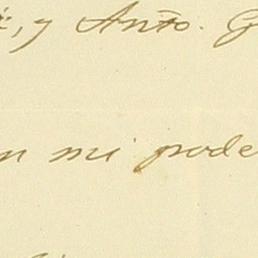 , y Anto. G
n mi pode